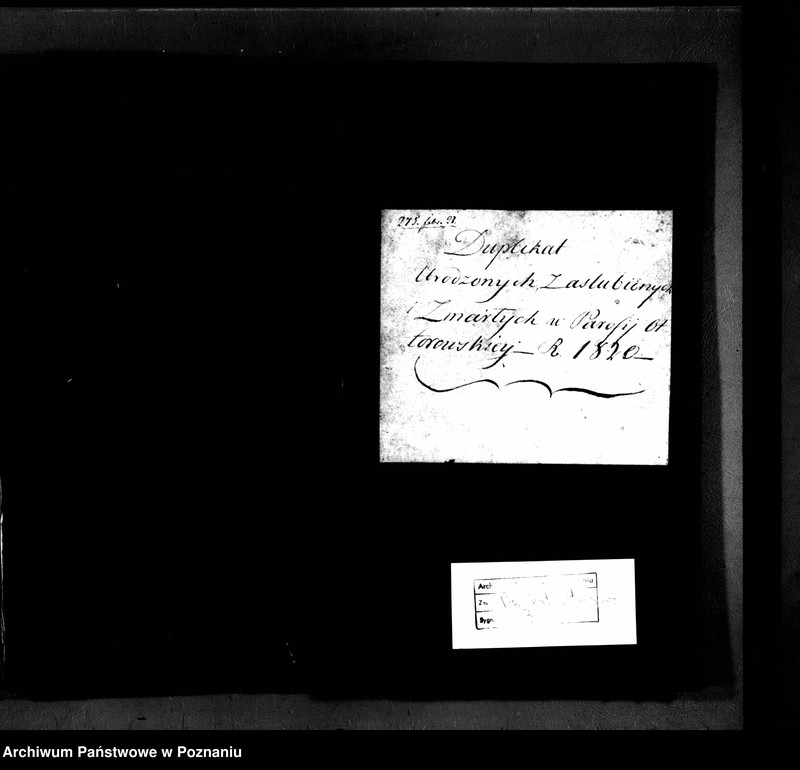 275. febr. 21.
Duplikat
Urodzonych, Zaslubionych
i Zmartych w Parafij Ot
torowskiey — R. 1820 —
Arch
Zes
Sygn.
Archiwum Państwowe w Poznaniu